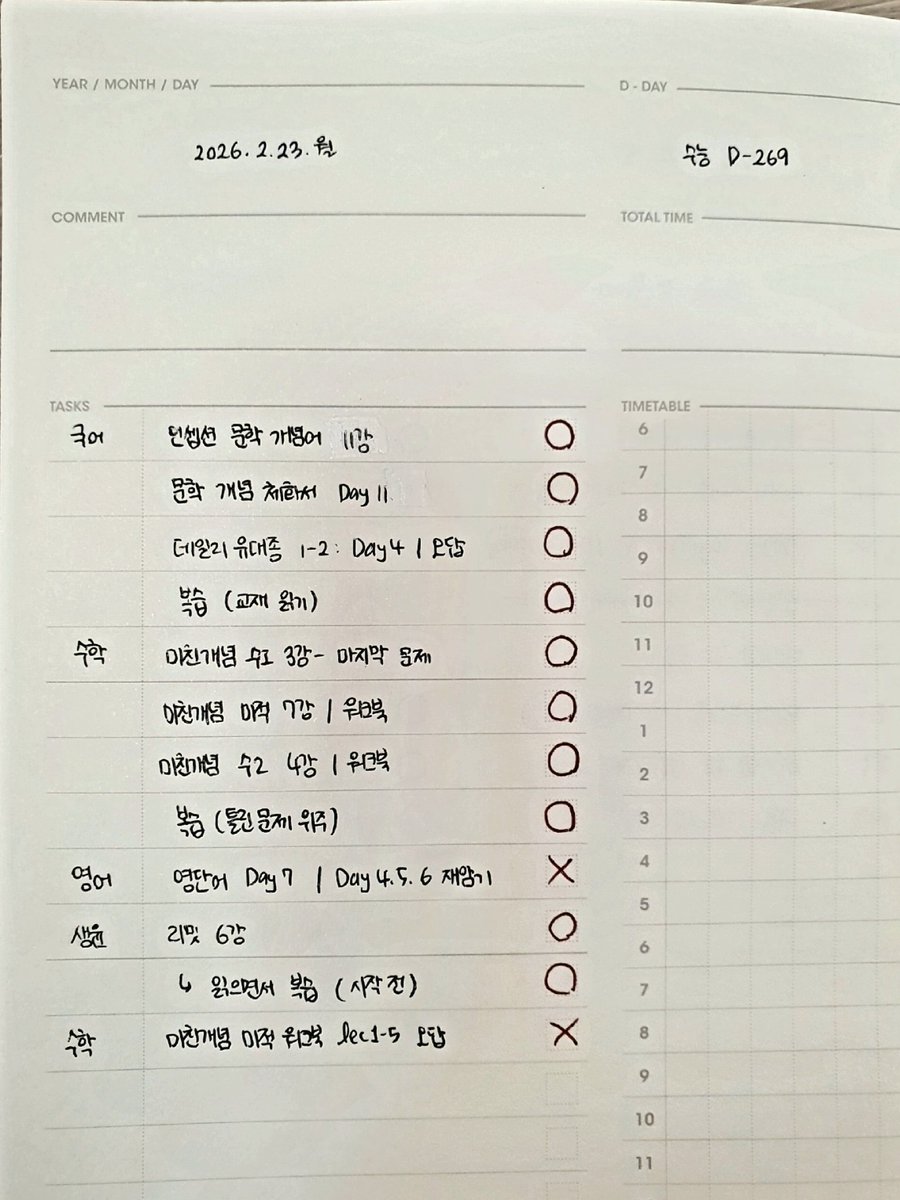 YEAR / MONTH / DAY
D - DAY
2026. 2. 23. 월
수능 D-269
COMMENT
TOTAL TIME
TASKS
TIMETABLE
국어 언셉션 문학 개념어 11강 O
문학 개념 체화서 Day 11 O
데일리 유대종 1-2 : Day 4 | 오답 O
복습 (교재 읽기) O
수학 미친개념 수1 3강 - 마지막 문제 O
미친개념 미적 7강 | 워크북 O
미친개념 수2 4강 | 워크북 O
복습 (틀린 문제 위주) O
영어 영단어 Day 7 | Day 4. 5. 6 재암기 X
생윤 리밋 6강 O
↳ 읽으면서 복습 (시작 전) O
수학 미친개념 미적 워크북 lec 1-5 오답 X
6
7
8
9
10
11
12
1
2
3
4
5
6
7
8
9
10
11